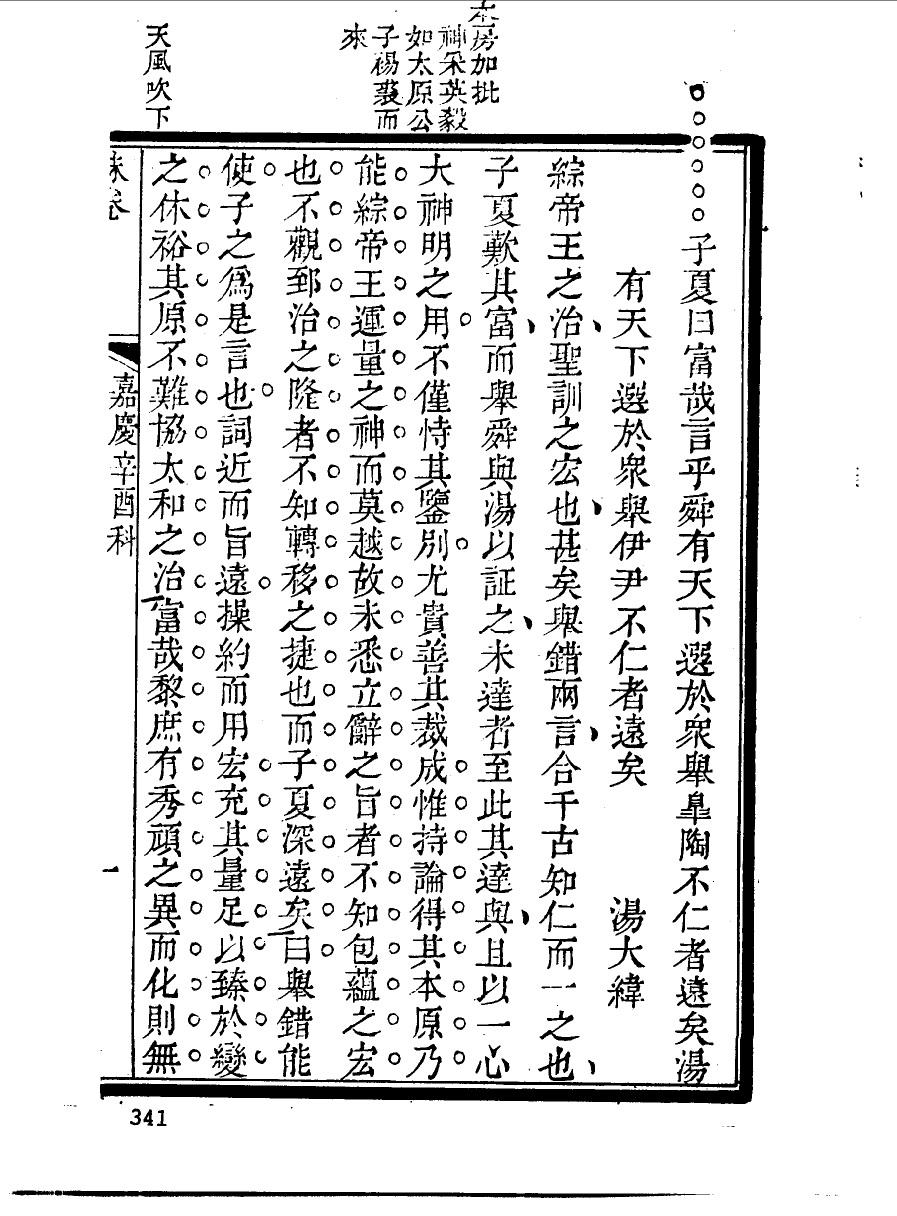 本房加批
神采英毅
如太原公
子裼裘而
來
天風吹下
子夏曰富哉言乎舜有天下選於眾舉皐陶不仁者遠矣湯
有天下選於眾舉伊尹不仁者遠矣　　湯大緯
綜帝王之治聖訓之宏也甚矣舉錯兩言合千古知仁而一之也
子夏歎其富而舉舜與湯以証之未達者至此其達與且以一心
大神明之用不僅恃其鑒別尤貴善其裁成惟持論得其本原乃
能綜帝王運量之神而莫越故未悉立辭之旨者不知包蘊之宏
也不觀郅治之隆者不知轉移之捷也而子夏深遠矣曰舉錯能
使子之爲是言也詞近而旨遠操約而用宏充其量足以臻於變
之休裕其原不難協太和之治富哉黎庶有秀頑之異而化則無
硃卷
嘉慶辛酉科
一
341